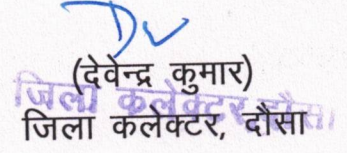 (देवेन्द्र कुमार)
जिला कलेक्टर, दौसा
जिला कलेक्टर, दौसा